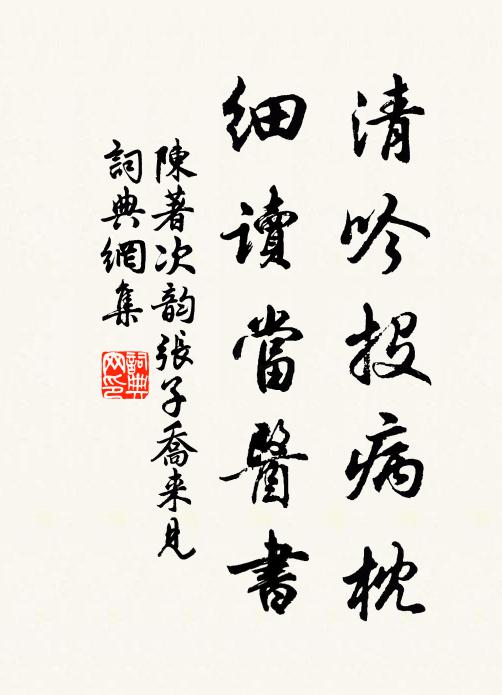 清吟投病枕
細讀當醫書
陳著次韵張子喬来見
詞典網集
詞典网印